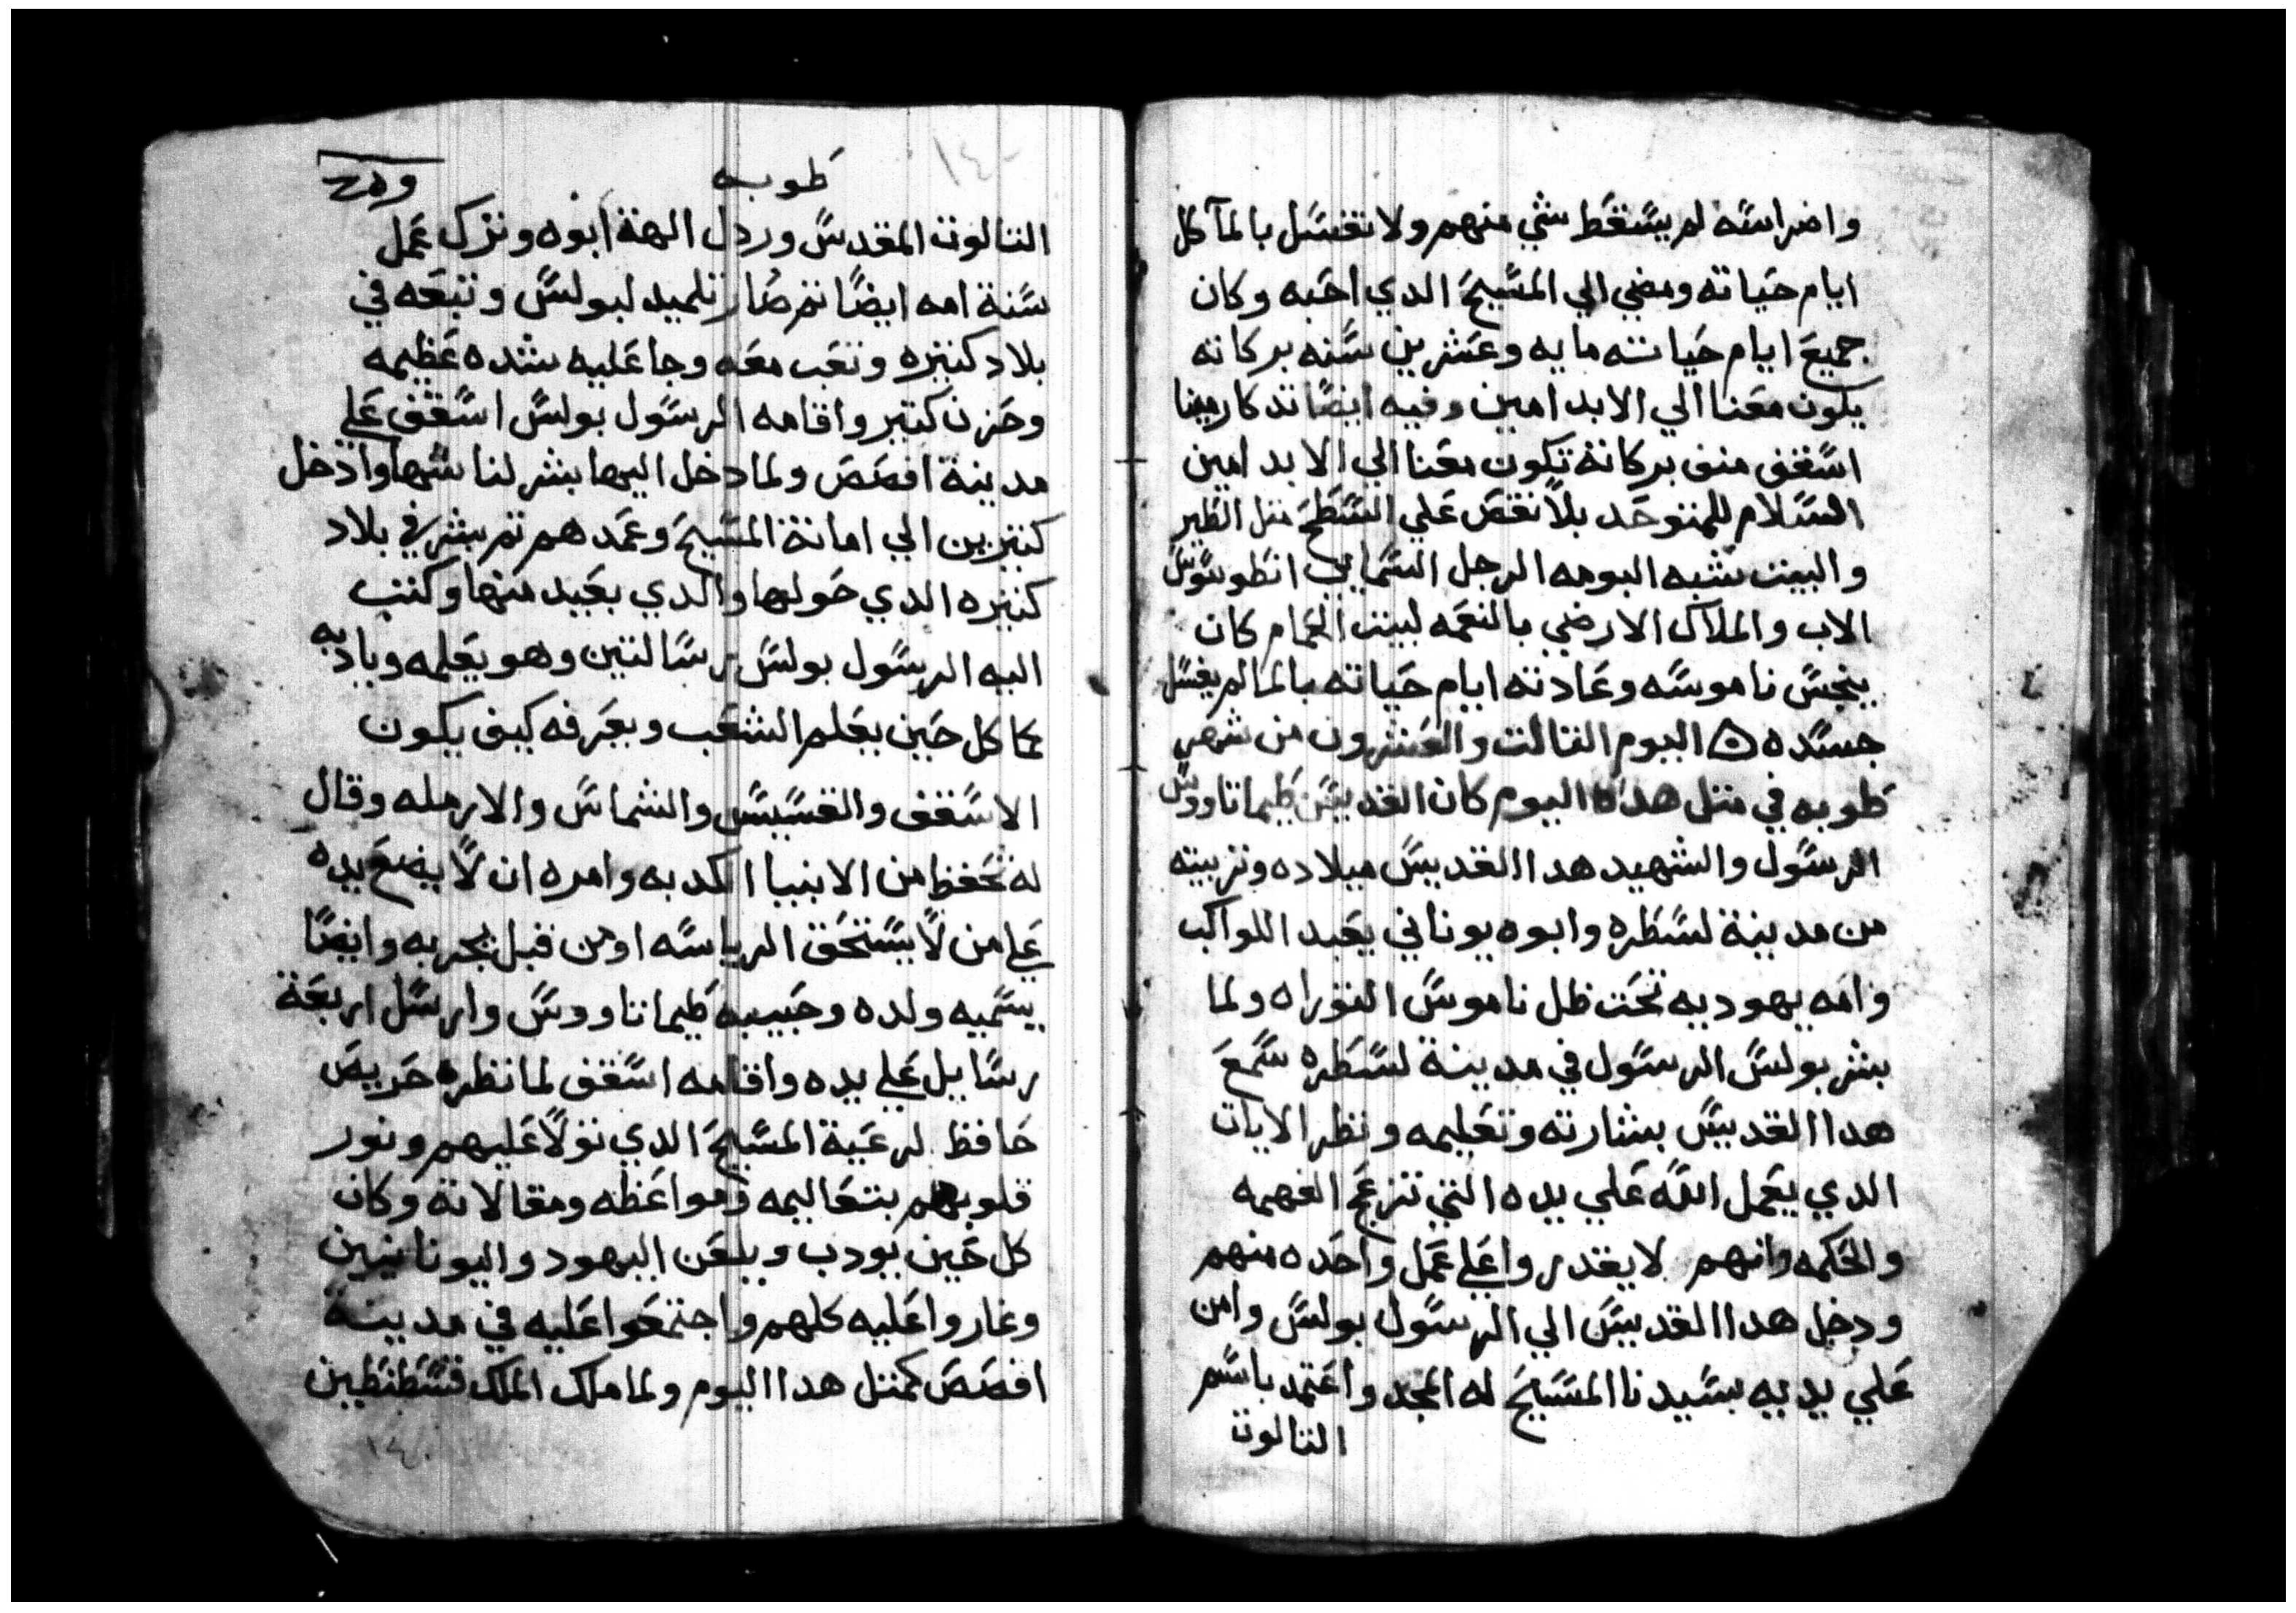 واضراسه لم يسقط شي منهم ولا تفسل بالمآ كل
ايام حياته ومضي الي المسيح الدي احبه وكان
جميع ايام حياته مايه وعشرين سنه بركاته
يكون معنا الي الابد امين وفيه ايضا تدكار مينا
اسقف منف بركاته تكون معنا الي الابد امين
السلام للمتوحد بلا نقص علي السطح متل الطير
والبيت شبه البومه الرجل السمايي انطونيوس
الاب والملاك الارضي بالنعمه لبيت الحمام كان
ينجس ناموسه وعادته ايام حياته بالما لم يغسل
جسده ۞ اليوم التالت والعشرون من شهر
طوبه في متل هدا اليوم كان القديس طيماتاووس
الرسول والشهيد هدا القديس ميلاده وتربيته
من مدينة لسطره وابوه يوناني يعبد اللواكب
وامه يهوديه تحت ظل ناموس التوراه ولما
بشر بولس الرسول في مدينة لسطره سمع
هدا القديس بشارته وتعليمه ونظر الايات
الدي يعمل الله علي يده التي تزعج الفهمه
والحكمه وانهم لا يقدروا علي عمل واحده منهم
ودخل هدا القديس الي الرسول بولس وامن
علي يديه بسيدنا المسيح له المجد واعتمد باسم
التالوت
طوبه
التالوت المقدس وردل الهة ابوه وترك عمل
سنة امه ايضا تم صار تلميد لبولس وتبعه في
بلاد كتيره وتعب معه وجا عليه شده عظيمه
وحزن كتير واقامه الرسول بولس اسقف علي
مدينة افصص ولما دخل اليها بشر لناسها وادخل
كتيرين الي امانة المسيح وعمدهم تم بشر في بلاد
كتيره الدي حولها والدي بعيد منها وكتب
اليه الرسول بولس رسالتين وهو يعلمه وياديه
كما كل حين يعلم الشعب ويعرفه كيف يكون
الاسقف والقسيس والشماس والارمله وقال
له تحفظ من الانبيا الكدبه وامره ان لا يضع يده
علي من لا يستحق الرياسه او من قبل يجربه وايضا
يسميه ولده وحبيبه طيماتاووس وارسل اربعة
رسايل علي يده واقامه اسقف لما نظره حريص
حافظ لرعية المسيح الدي تولا عليهم ونور
قلوبهم بتعاليمه ومواعظه ومقالاته وكان
كل حين يودب ويلعن اليهود واليونانيين
وغاروا عليه كلهم واجتمعوا عليه في مدينة
افصص كمتل هدا اليوم ولما ملك الملك قسطنطين
١٤٠